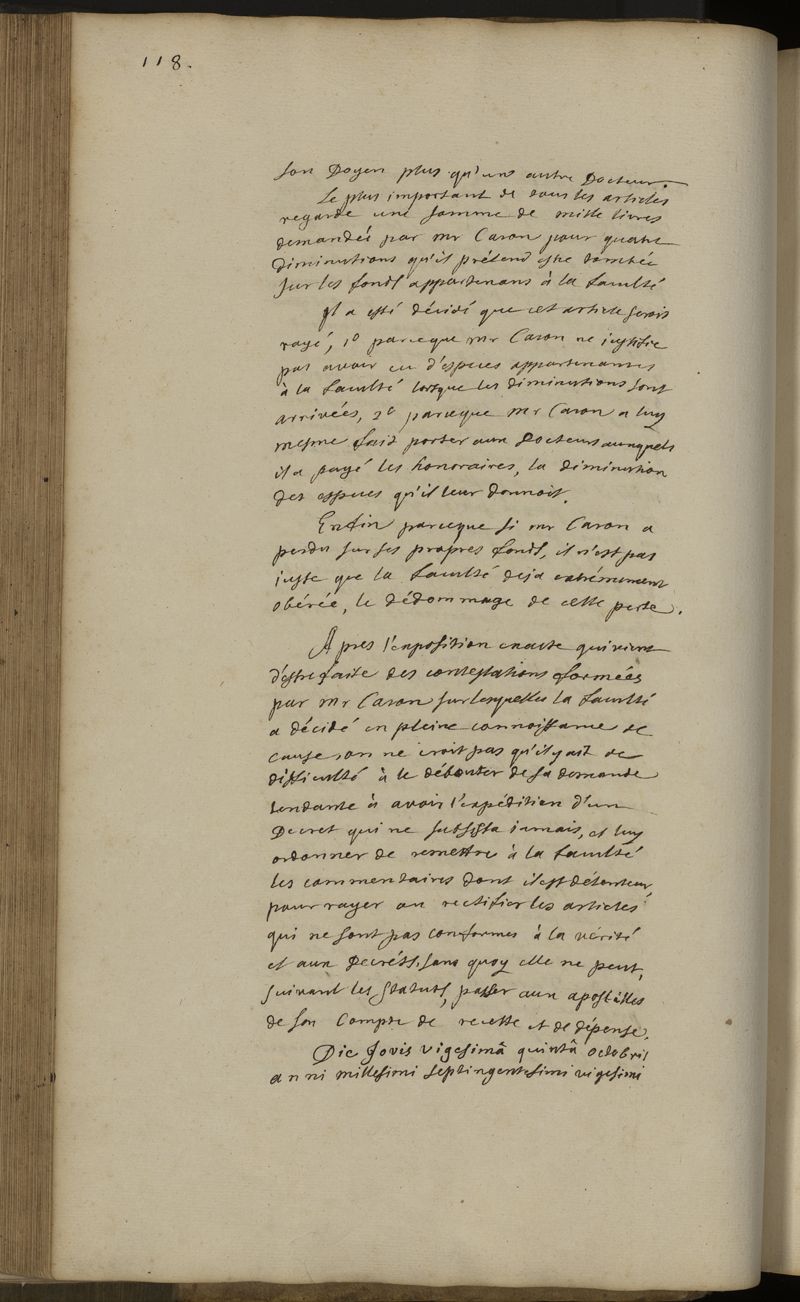 118.
son Doyen plus qu'un autre Docteur.
Le plus important de tous les articles
regarde une somme de mille livres
demandée par mr Caron pour quatre
diminutions qu'il prétend estre tombée
sur les fonds appartenans à la faculté
Il a esté décidé que cet article seroit
rayé, 1º parceque mr Caron ne justifie
pas avoir eu d'especes appartenantes
à la faculté lorsque les diminutions sont
arrivées, 2º parceque mr Caron a luy
mesme fait porter aux Docteurs auxquels
il a payé les honoraires, la diminution
des especes qu'il leur donnoit.
Enfin parceque si mr Caron a
perdu sur ses propres fonds, il n'est pas
juste que la faculté deja extrémement
obérée, le dédommage de cette perte.
Apres l'exposition exacte qui vient
d'estre faite des contestations formées
par mr Caron sur lesquelles la faculté
a décidé en pleine connoissance de
cause, on ne croit pas qu'il y ait de
difficulté à le débouter de sa demande
tendante à avoir l'expédition d'un
Decret qui ne subsista jamais, et luy
ordonner de remettre à la faculté
les commentaires dont il est détenteur,
pour rayer ou rectifier les articles
qui ne sont pas conformes à la vérité
et aux Decréts, sans quoy elle ne peut,
suivant les statuts, passer aux apostilles
de son Compte de recette et de dépense.
Die Jovis vigesimâ quintâ octobris
anni millesimi septingentesimi vigesimi